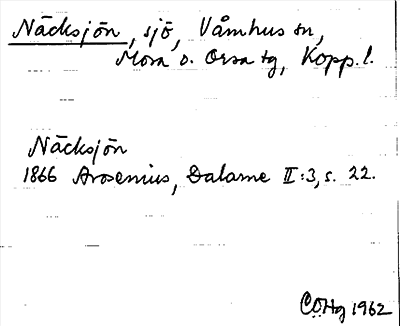 Näcksjön, sjö, Våmhus sn,
Mora o. Orsa tg, Kopp. l.
Näcksjön
1866 Arosenius, Dalarne II:3, s. 22.
COHg 1962